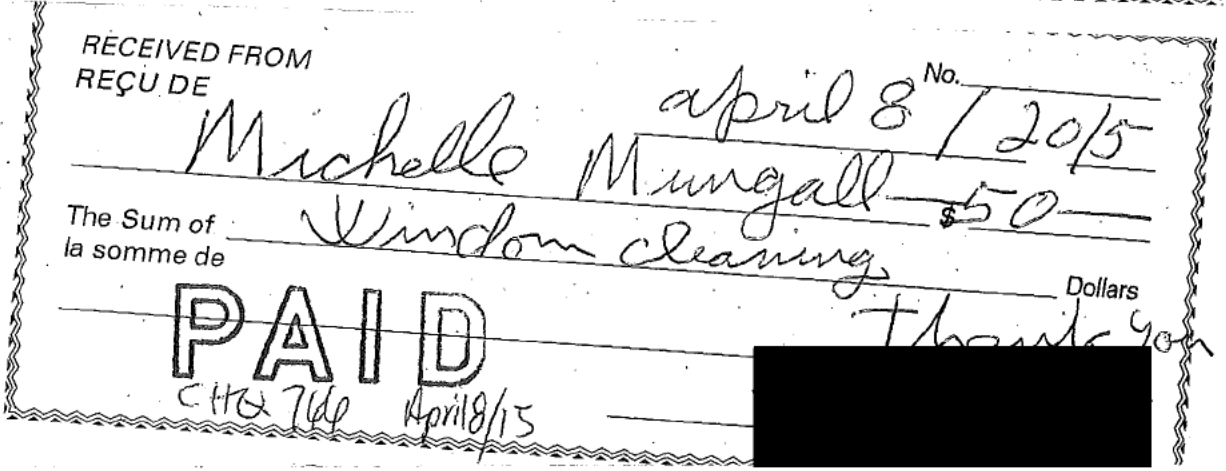 RECEIVED FROM
REÇU DE
No.
april 8 / 2015
Michelle Mungall — $50 —
The Sum of
la somme de
Window cleaning
Dollars
Thank you
PAID
CHQ 766 April 8/15